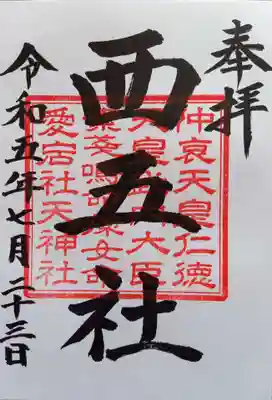 奉拝
西五社
仲哀天皇仁徳
天皇武内大臣
女命
愛宕社天神社
令和五年七月二十三日